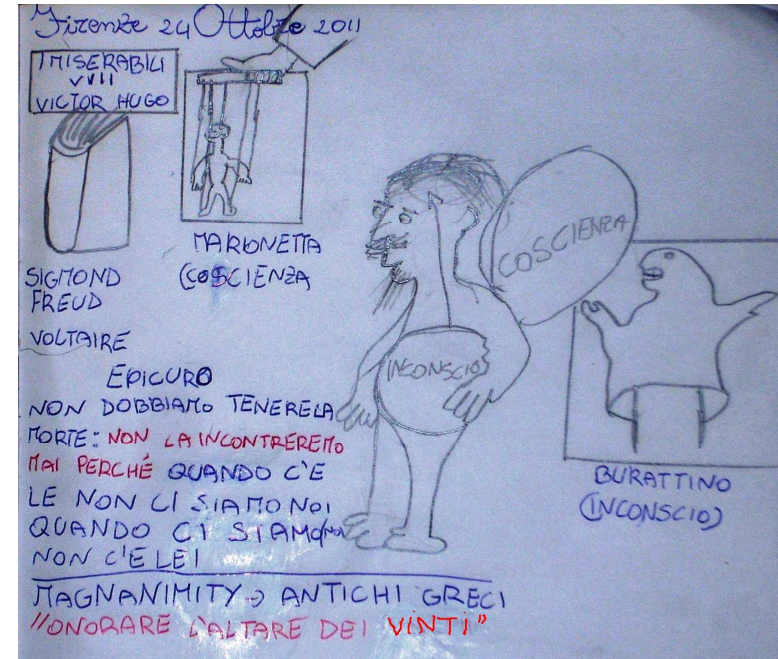 Firenze 24 Ottobre 2011
I MISERABILI
VIII
VICTOR HUGO
MARIONETTA
(COSCIENZA
SIGMOND
FREUD
VOLTAIRE
COSCIENZA
INCONSCIO
BURATTINO
(INCONSCIO)
EPICURO
NON DOBBIAMO TENERE LA
MORTE: NON LA INCONTREREMO
MAI PERCHÉ QUANDO C'E
LE NON CI SIAMO NOI
QUANDO CI SIAMO NOI
NON C'E LEI
MAGNANIMITY → ANTICHI GRECI
"ONORARE L'ALTARE DEI VINTI"